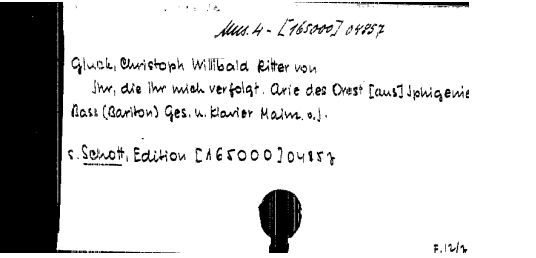 Mus. 4 - [165000] 04857
Gluck, Christoph Willibald Ritter von
Ihr, die ihr mich verfolgt. Arie des Orest [aus] Iphigenie
Bass (Bariton) Ges. u. Klavier Mainz o.J.
s. Schott, Edition [165000] 04857
F. 12/2